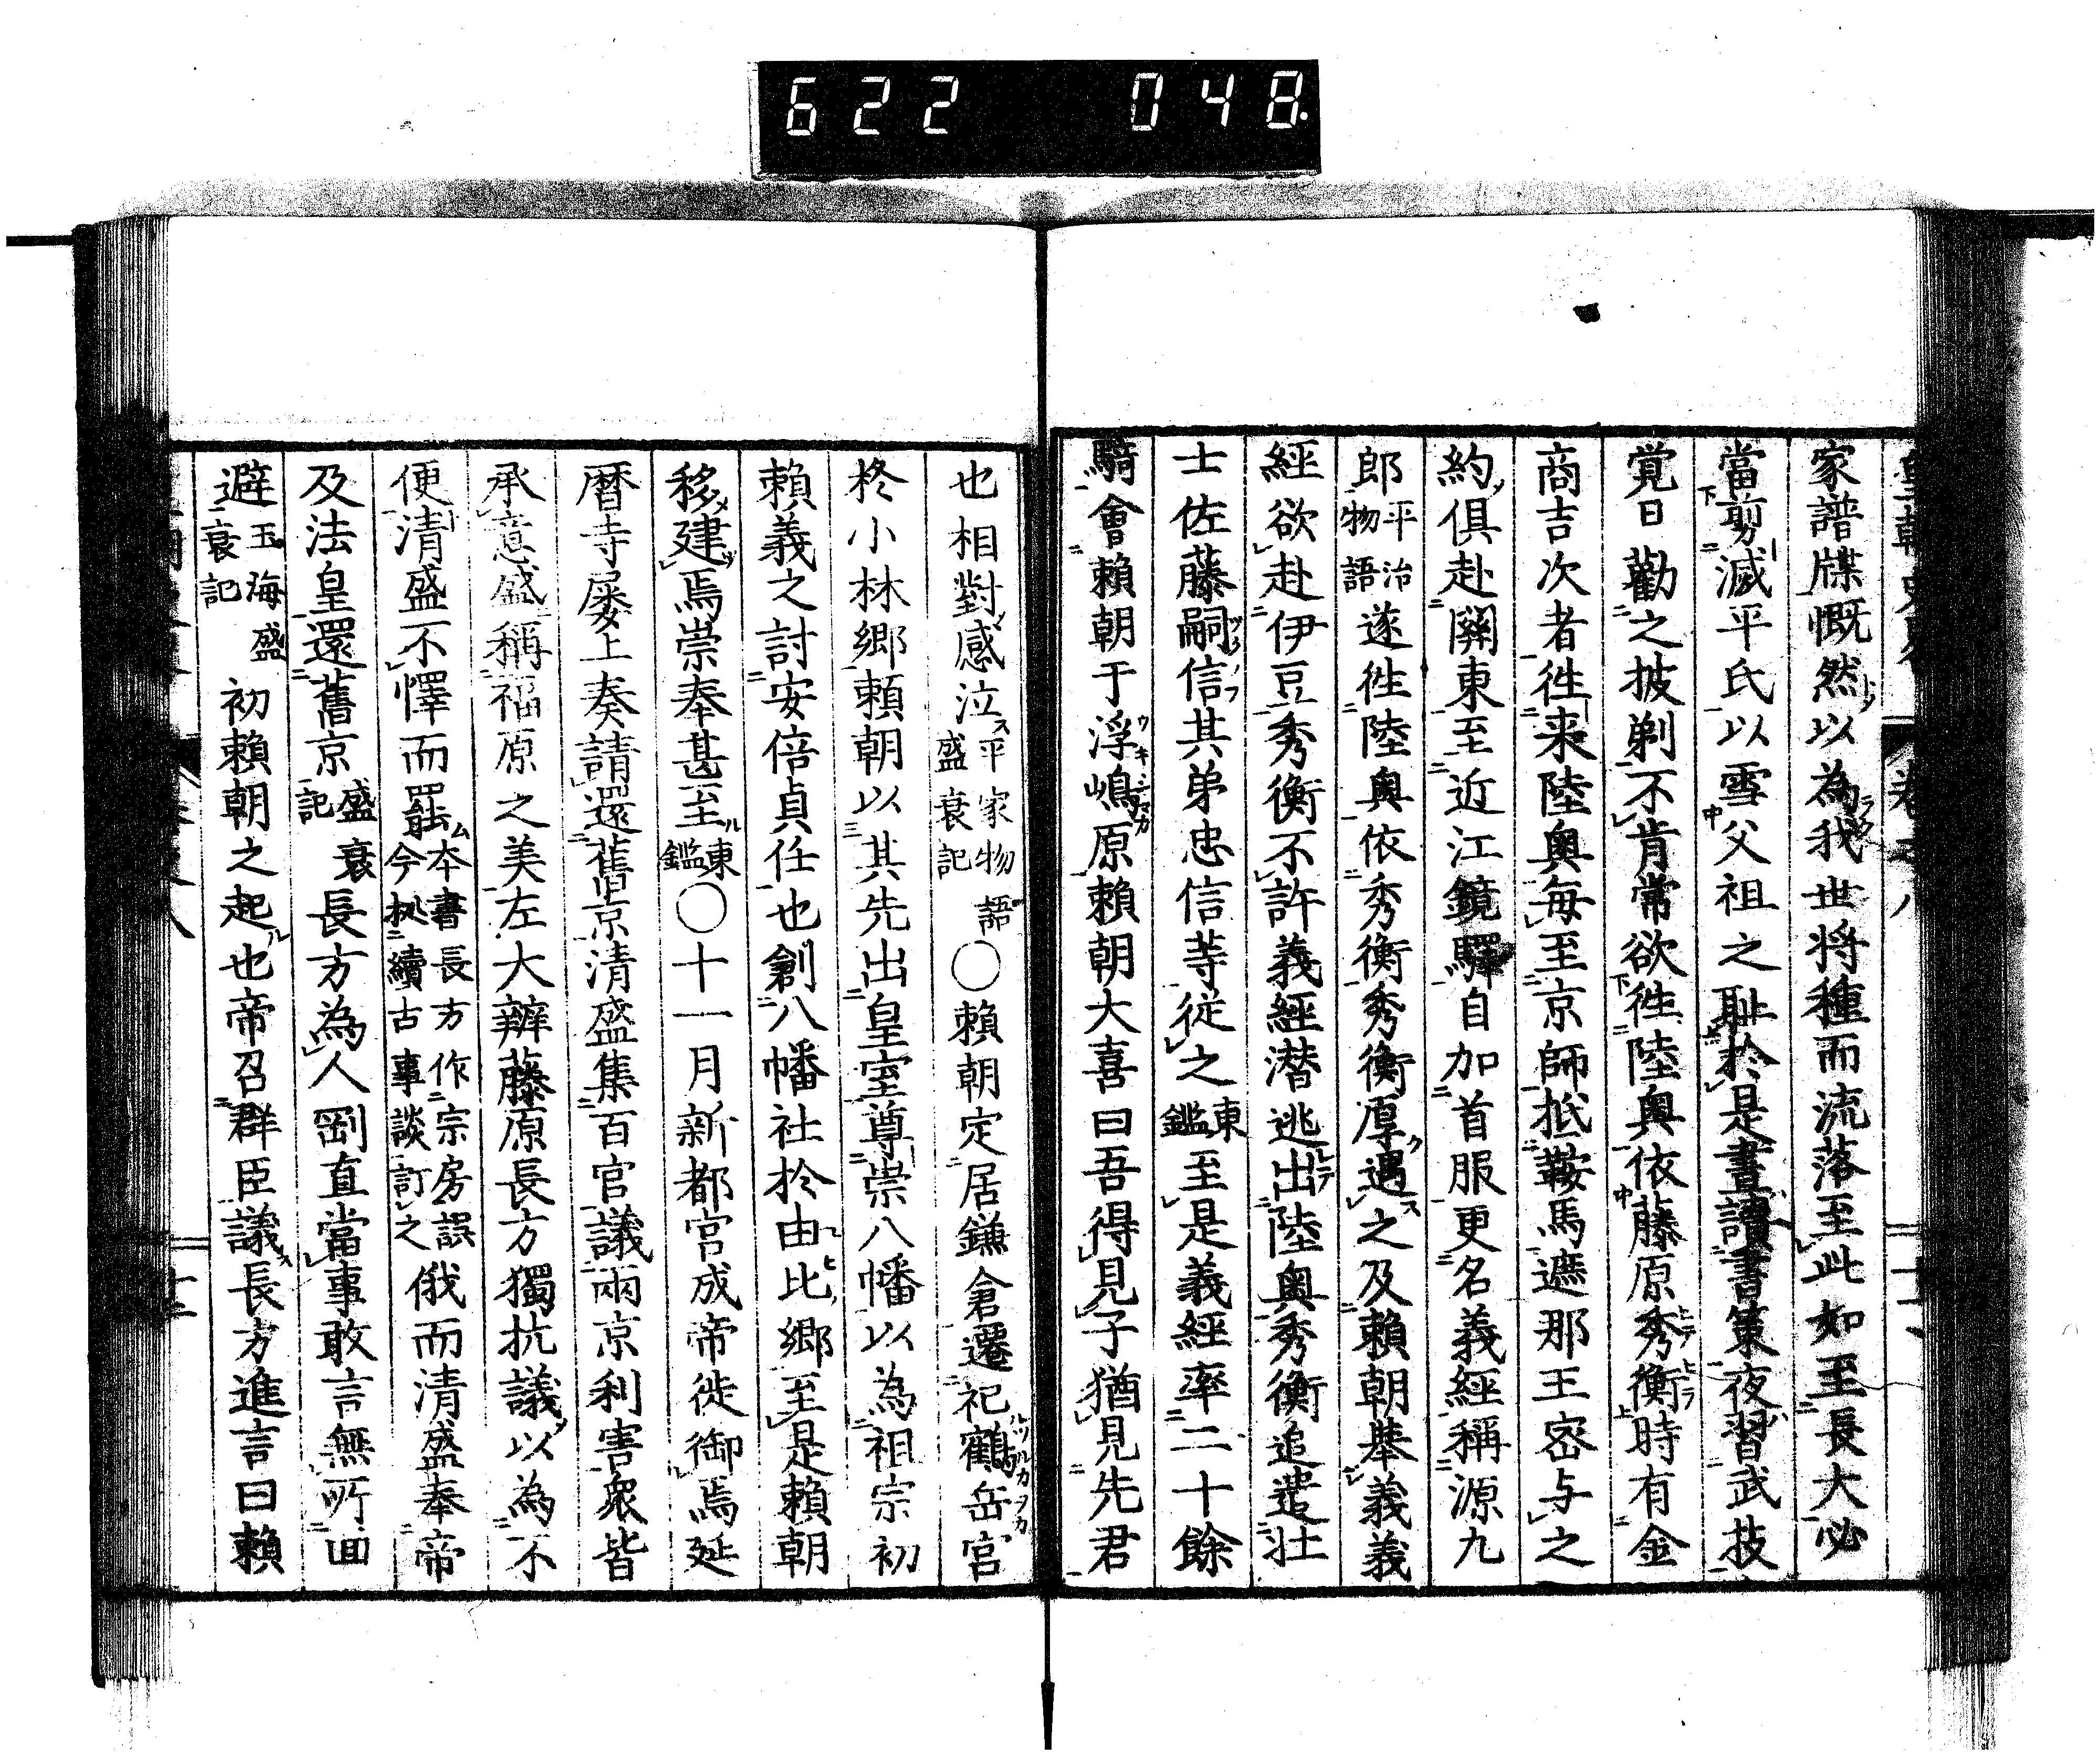 622 048
家譜牒慨然以為我世将種而流落至此如至長大必
當剪滅平氏以雪父祖之耻於是晝讀書策夜習武技
覚日勸之披剃不肯常欲徃陸奥依藤原秀衡時有金
商吉次者徃来陸奥毎至京師抵鞍馬遮那王密与之
約俱赴関東至近江鏡驛自加首服更名義經稱源九
郎平治物語遂徃陸奥依秀衡秀衡厚遇之及賴朝舉義義
經欲赴伊豆秀衡不許義經潜逃出陸奥秀衡追遣壮
士佐藤嗣信其弟忠信等従之東鑑至是義經率二十餘
騎會賴朝于浮嶋原賴朝大喜曰吾得見子猶見先君
也相對感泣平家物語盛衰記○賴朝定居鎌倉遷祀鶴岳宮
於小林郷賴朝以其先出皇室尊崇八幡以為祖宗初
賴義之討安倍貞任也創八幡社於由比郷至是賴朝
移建焉崇奉甚至東鑑○十一月新都宮成帝徙御焉延
暦寺屡上奏請還舊京清盛集百官議兩京利害衆皆
承意盛稱福原之美左大辨藤原長方獨抗議以為不
便清盛不懌而罷本書長方作宗房誤今拠續古事談訂之俄而清盛奉帝
及法皇還舊京盛衰記長方為人剛直當事敢言無所回
避玉海盛衰記初賴朝之起也帝召群臣議長方進言曰賴